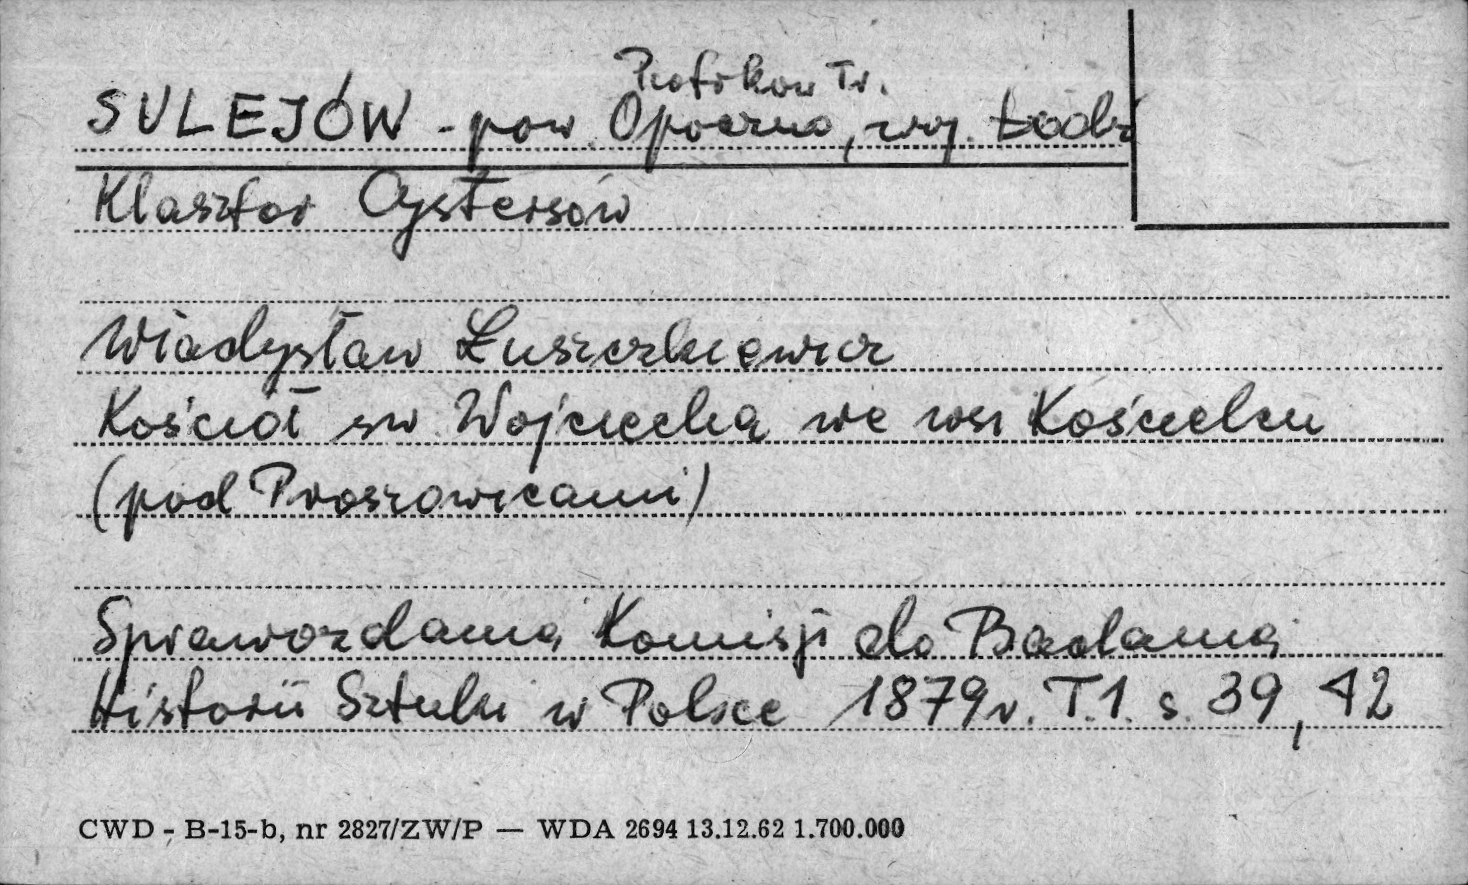 Piotrków Tr.
SULEJÓW - pow. Opoczno, woj. Łódź
Klasztor Cystersów
Władysław Łuszczkiewicz
Kościół św. Wojciecha we wsi Kościelcu
(pod Proszowicami)
Sprawozdania Komisji do Badania
Historii Sztuki w Polsce 1879 r. T.1. s. 39, 42
CWD - B-15-b, nr 2827/ZW/P — WDA 2694 13.12.62 1.700.000